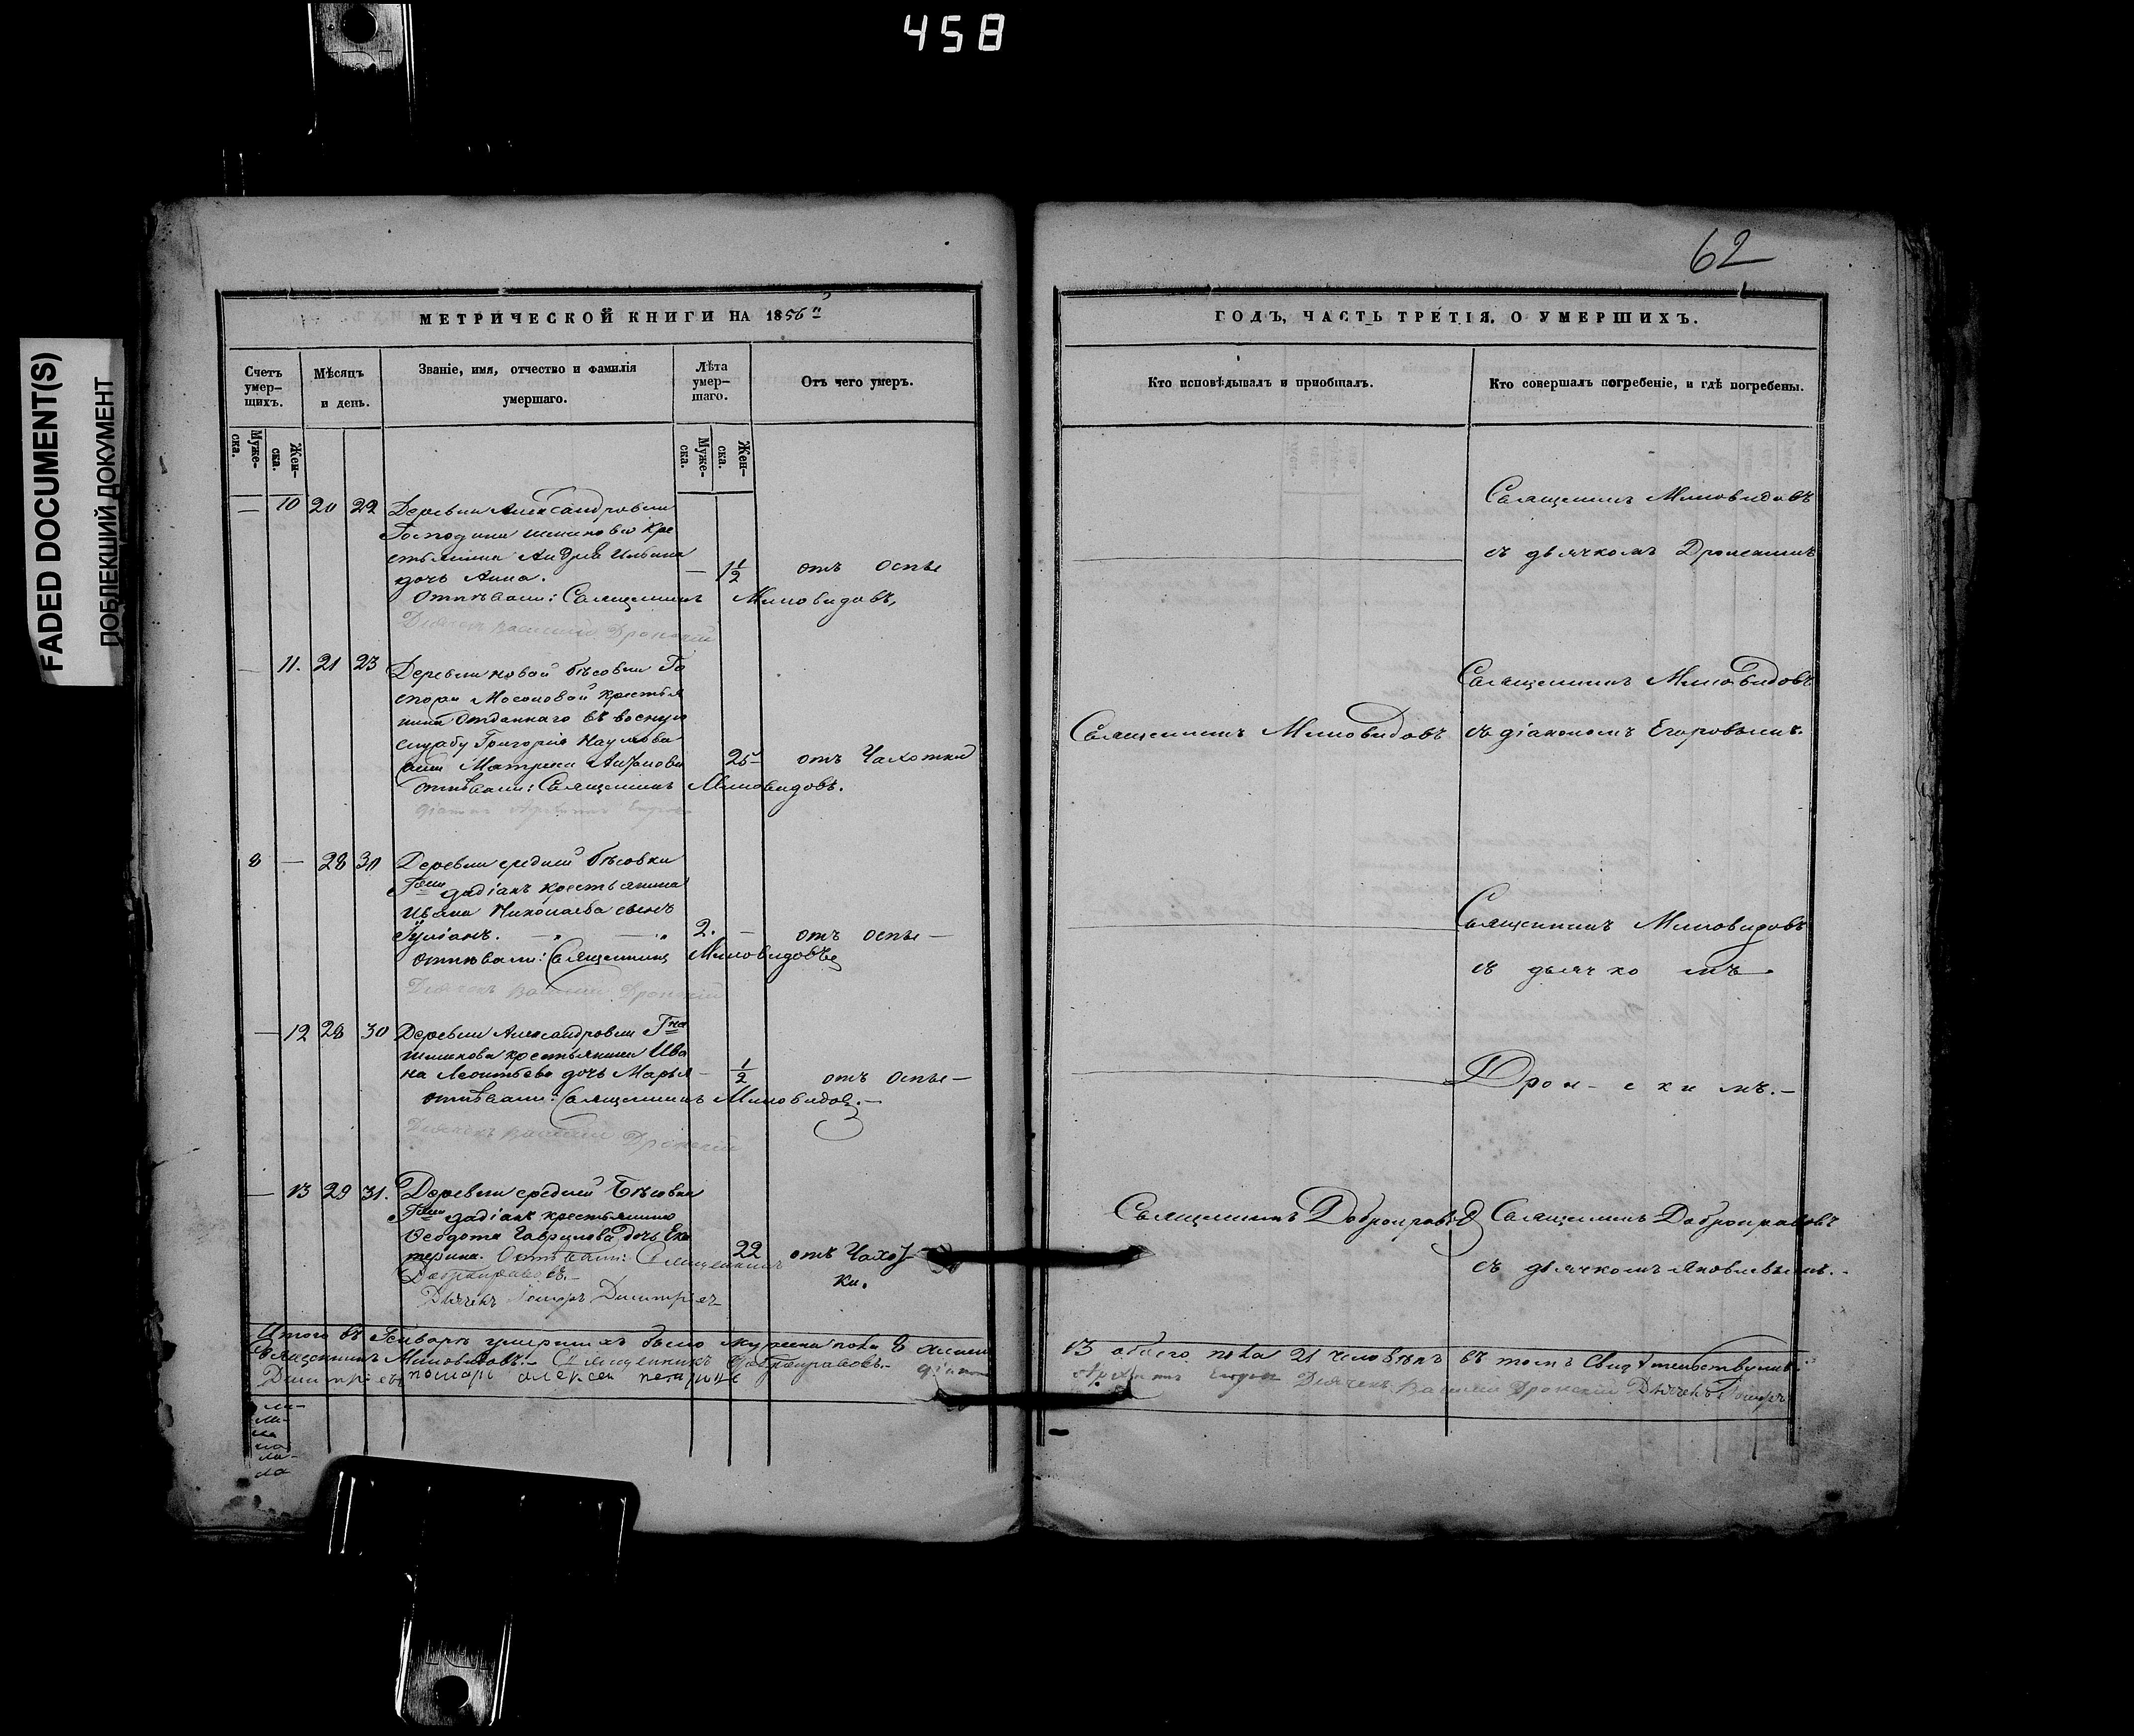 458
FADED DOCUMENT(S)
ПОБЛЕКШИЙ ДОКУМЕНТ
62
МЕТРИЧЕСКОЙ КНИГИ НА 1856й
Счетъ умер-шихъ.
Мѣсяцъ и день.
Званіе, имя, отчество и фамилія умершаго.
Лѣта умер-шаго.
Отъ чего умеръ.
Муже-ска.
Жен-ска.
Муже-ска.
Жен-ска.
— 10 20 22 Деревни Александровки
Господина Шишкова кре
стьянина Андрея Ильина
дочь Анна. — 1 1/2 отъ оспы
Отпѣвали: Священникъ Миловидовъ,
Дьячекъ Василий Дронский
— 11. 21 23 Деревни новой Бѣсовки Го
спожи Мосоловой крестья
нина отданнаго въ воєнную
службу Григорія Наумова
жена Матрена Антонова 25 отъ Чахотки
Отпѣвали: Священникъ Миловидовъ.
діаконъ Егоровъ
8 — 28 30 Деревни средней Бѣсовки
Гжи дадіанъ крестьянина
Ивана Николаева сынъ
Іуліанъ. 2. — отъ оспы —
Отпѣвали: Священникъ Миловидовъ
Дьячекъ Василий Дронский
— 12 28 30 Деревни Александровки Гна
Шишкова крестьянина Ива
на Леонтьева дочь Марья — 1/2 отъ оспы —
отпѣвали: Священникъ Миловидов. —
Дьячекъ Василий Дронский
— 13 29 31. Деревни средней Бѣсовки
Гжи дадіанъ крестьянина
Ѳеодота Гаврилова дочь Ека
терина. Отпѣвали: Священникъ 22 отъ Чахот
Доброправовъ. — ки.
Дьячекъ Дмитріев
Итого въ Январѣ умершихъ было мужеска пола 8 женска
Священникъ Миловидовъ. — Священникъ Доброправовъ. — діаконъ
Дмитріевъ пономарь алексей петровъ
ГОДЪ, ЧАСТЬ ТРЕТІЯ, О УМЕРШИХЪ.
Кто исповѣдывалъ и приобщалъ.
Кто совершалъ погребеніе, и гдѣ погребены.
Священникъ Миловидовъ
съ дьячкомъ Дронскимъ
Священникъ Миловидовъ
Священникъ Миловидовъ съ діакономъ Егоровымъ.
Священникъ Миловидовъ
съ дьячко мъ
Дрон-скимъ. —
Священникъ Доброправовъ Священникъ Доброправовъ
съ дьячкомъ Яковлевымъ. —
13 обоего пола 21 человѣкъ въ томъ свидѣтельствуемъ:
Егоровъ Дьячекъ Василий Дронский Дьячекъ